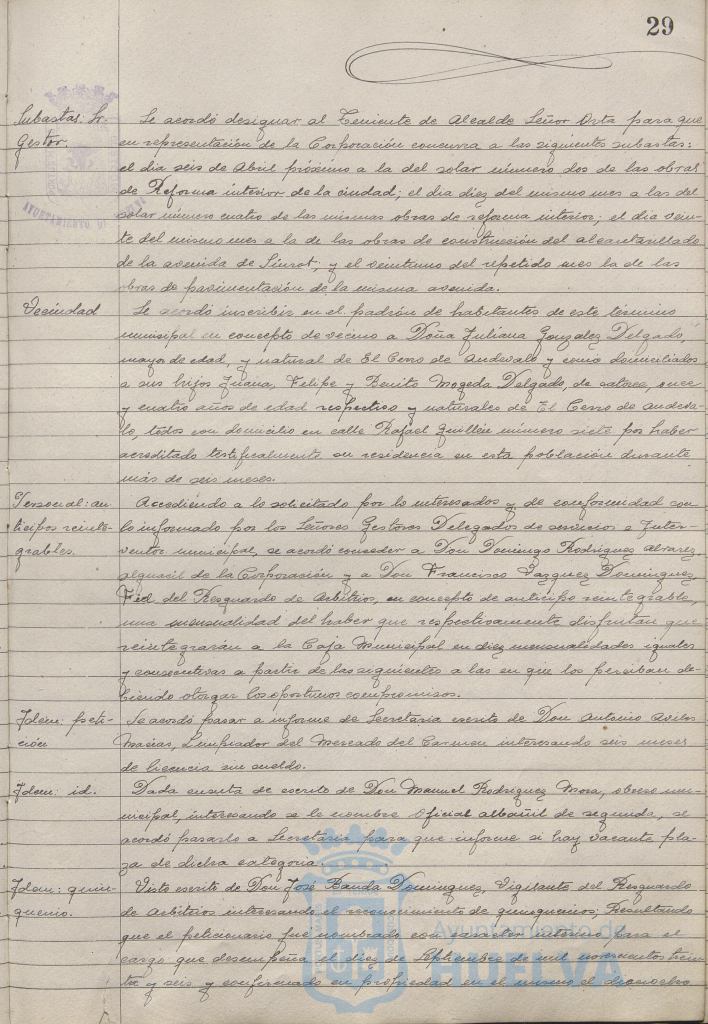 29
Subastas. Sr.
Gestor.
Se acordó designar al Teniente de Alcalde Señor Orta para que
en representación de la Corporación concurra a las siguientes subastas:
el dia seis de Abril próximo a la del solar número dos de las obras
de Reforma interior de la ciudad; el dia diez del mismo mes a las del
solar número cuatro de las mismas obras de reforma interior; el dia vein-
te del mismo mes a la de las obras de construcción del alcantarillado
de la avenida de Siurot; y el veintiuno del repetido mes la de las
obras de pavimentación de la misma avenida.
Vecindad
Se acordó inscribir en el padrón de habitantes de este término
municipal en concepto de vecino a Doña Juliana Gonzalez Delgado,
mayor de edad, y natural de El Cerro de Andevalo y como domiciliados
a sus hijos Juana, Felipe y Benito Mogeda Delgado, de catorce, once
y cuatro años de edad respectivos y naturales de El Cerro de Andeva-
lo, todos con domicilio en calle Rafael Guillén número siete por haber
acreditado testificalmente su residencia en esta población durante
más de seis meses.
Personal: an-
ticipos reinte-
grables.
Accediendo a lo solicitado por lo interesados y de conformidad con
lo informado por los Señores Gestores Delegados de servicios e Inter-
ventor municipal, se acordó conceder a Don Domingo Rodriguez Alvarez,
alguacil de la Corporación y a Don Francisco Vazquez Dominguez,
Fiel del Resguardo de Arbitrios, en concepto de anticipo reintegrable,
una mensualidad del haber que respectivamente disfrutan que
reintegrarán a la Caja Municipal en diez mensualidades iguales
y consecutivas a partir de las siguientes a las en que los perciban de-
biendo otorgar los oportunos compromisos.
Idem: peti-
ción
Se acordó pasar a informe de Secretaria escrito de Don Antonio Aviles
Macias, Limpiador del Mercado del Carmen interesando seis meses
de licencia sin sueldo.
Idem: id.
Dada cuenta de escrito de Don Manuel Rodriguez Mora, obrero mu-
nicipal, interesando se le nombre Oficial albañil de segunda, se
acordó pasarlo a Secretaria para que informe si hay vacante pla-
za de dicha categoria.
Idem: quin-
quenio.
Visto escrito de Don José Banda Dominguez, Vigilante del Resguardo
de Arbitrios interesando el reconocimiento de quinquenios; Resultando
que el peticionario fué nombrado con caracter interino para el
cargo que desempeña el diez de Septiembre de mil novecientos trein-
ta y seis y confirmado en propiedad en el mismo el dieciocho
Ayuntamiento de
HUELVA